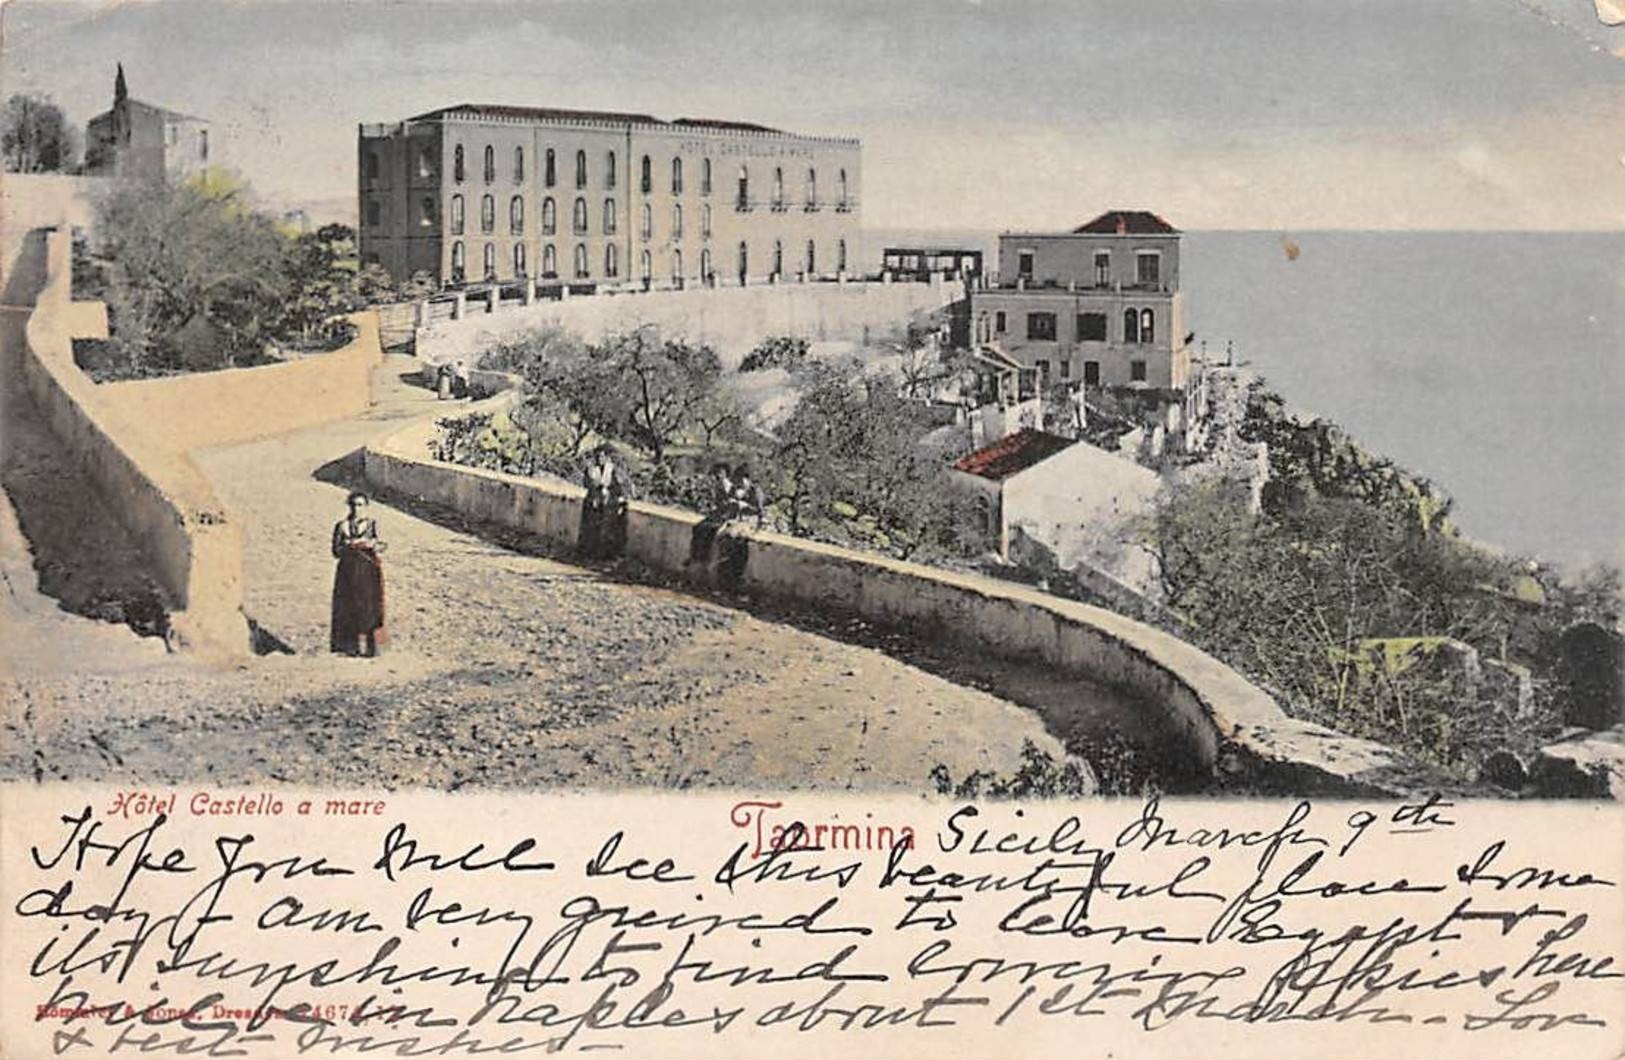 HOTEL CASTELLO A MARE
Hôtel Castello a mare
Taormina Sicily March 9th
Hope you will see this beautiful place some
day - am very greived to leave Egypt &
its sunshine to find lowering skies here
Römmler & Jonas, Dresden
will be in Naples about 1st March - Love
& best wishes -